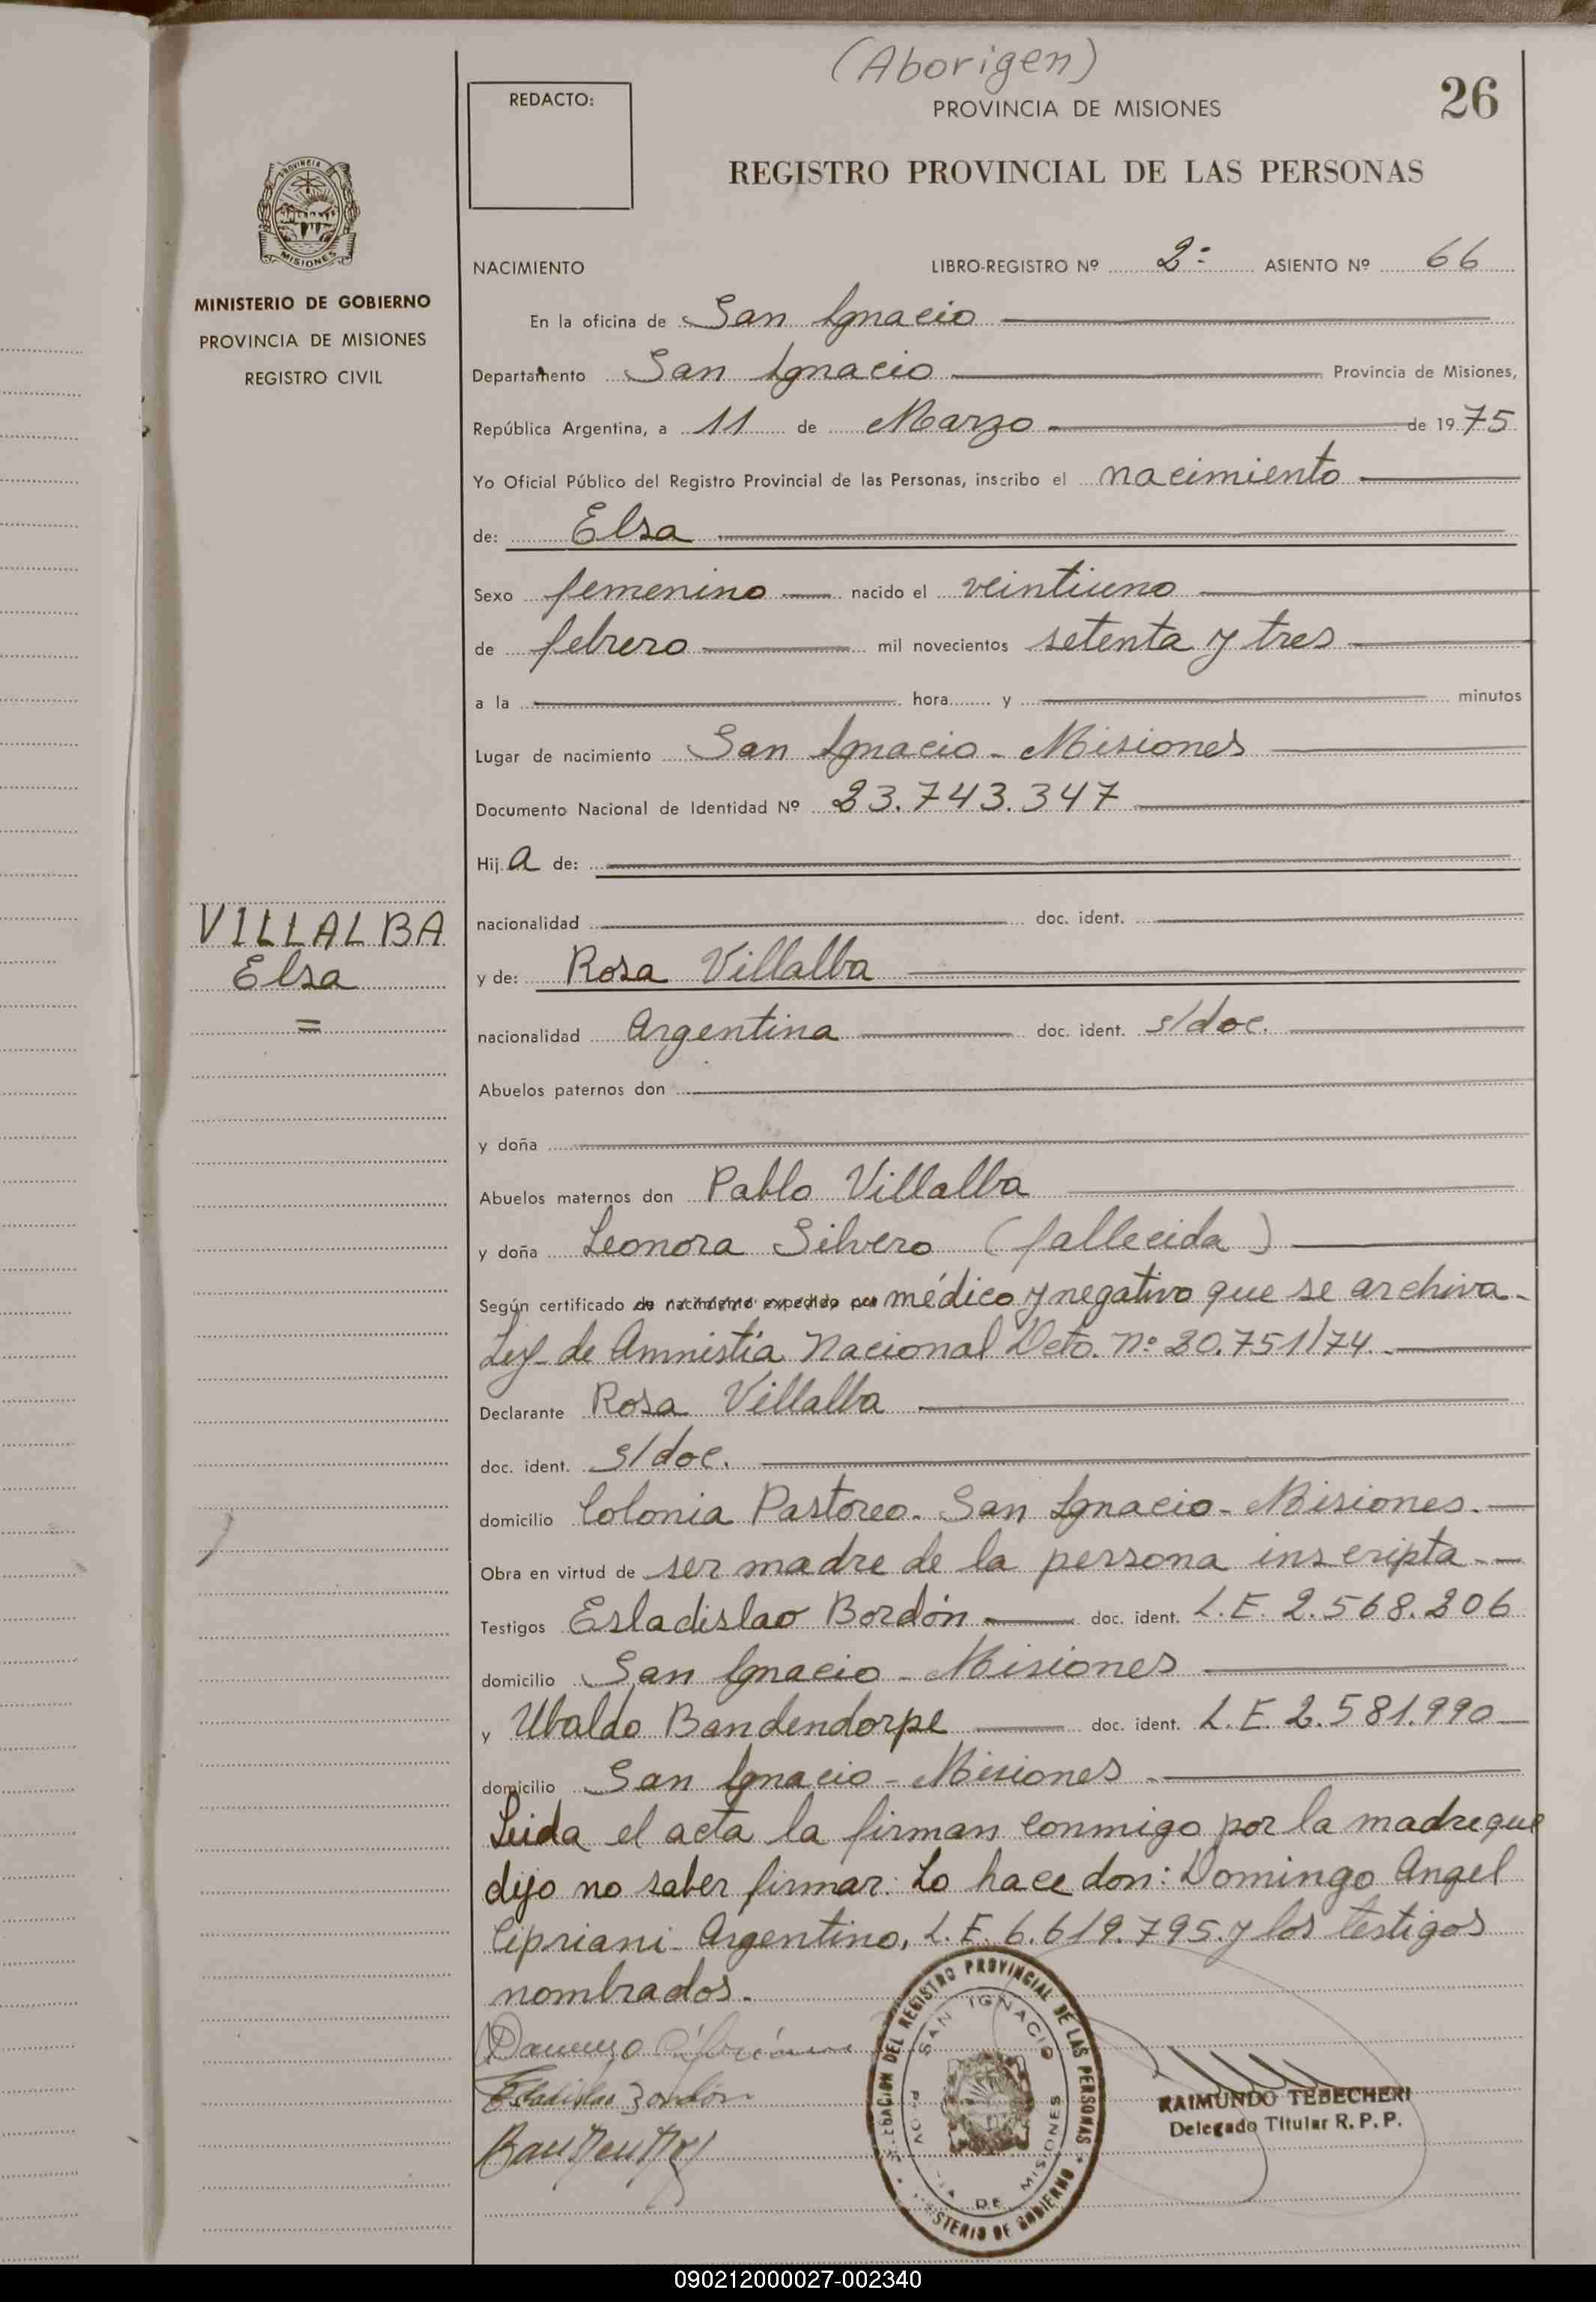 (Aborigen)
REDACTO:
PROVINCIA DE MISIONES
26
REGISTRO PROVINCIAL DE LAS PERSONAS
PROVINCIA DE
MISIONES
MINISTERIO DE GOBIERNO
PROVINCIA DE MISIONES
REGISTRO CIVIL
NACIMIENTO LIBRO-REGISTRO Nº 2º ASIENTO Nº 66
En la oficina de San Ignacio
Departamento San Ignacio Provincia de Misiones,
República Argentina, a 11 de Marzo de 1975
Yo Oficial Público del Registro Provincial de las Personas, inscribo el nacimiento
de: Elsa
Sexo femenino nacido el veintiuno
de febrero mil novecientos setenta y tres
a la hora y minutos
Lugar de nacimiento San Ignacio - Misiones
Documento Nacional de Identidad Nº 23.743.347
Hija de:
nacionalidad doc. ident.
VILLALBA
Elsa
y de: Rosa Villalba
nacionalidad Argentina doc. ident. s/doc.
Abuelos paternos don
y doña
Abuelos maternos don Pablo Villalba
y doña Leonora Silvero (fallecida)
Según certificado de nacimiento expedido por médico y negativo que se archiva.
Ley de Amnistía Nacional Dcto. nº 20.751/74.
Declarante Rosa Villalba
doc. ident. s/doc.
domicilio Colonia Pastoreo. San Ignacio - Misiones.
Obra en virtud de ser madre de la persona inscripta.
Testigos Esladislao Bordón doc. ident. L.E. 2.568.206
domicilio San Ignacio - Misiones
y Ubaldo Bandendorpe doc. ident. L.E. 2.581.990
domicilio San Ignacio - Misiones
Leida el acta la firman conmigo por la madre que
dijo no saber firmar. Lo hace don: Domingo Angel
Cipriani - Argentino, L.E. 6.619.795. y los testigos
nombrados.
Estadislao Bordón
DELEGACION DEL REGISTRO PROVINCIAL DE LAS PERSONAS
SAN IGNACIO
PROVINCIA DE MISIONES
MINISTERIO DE GOBIERNO
RAIMUNDO TEBECHERI
Delegado Titular R. P. P.
090212000027-002340